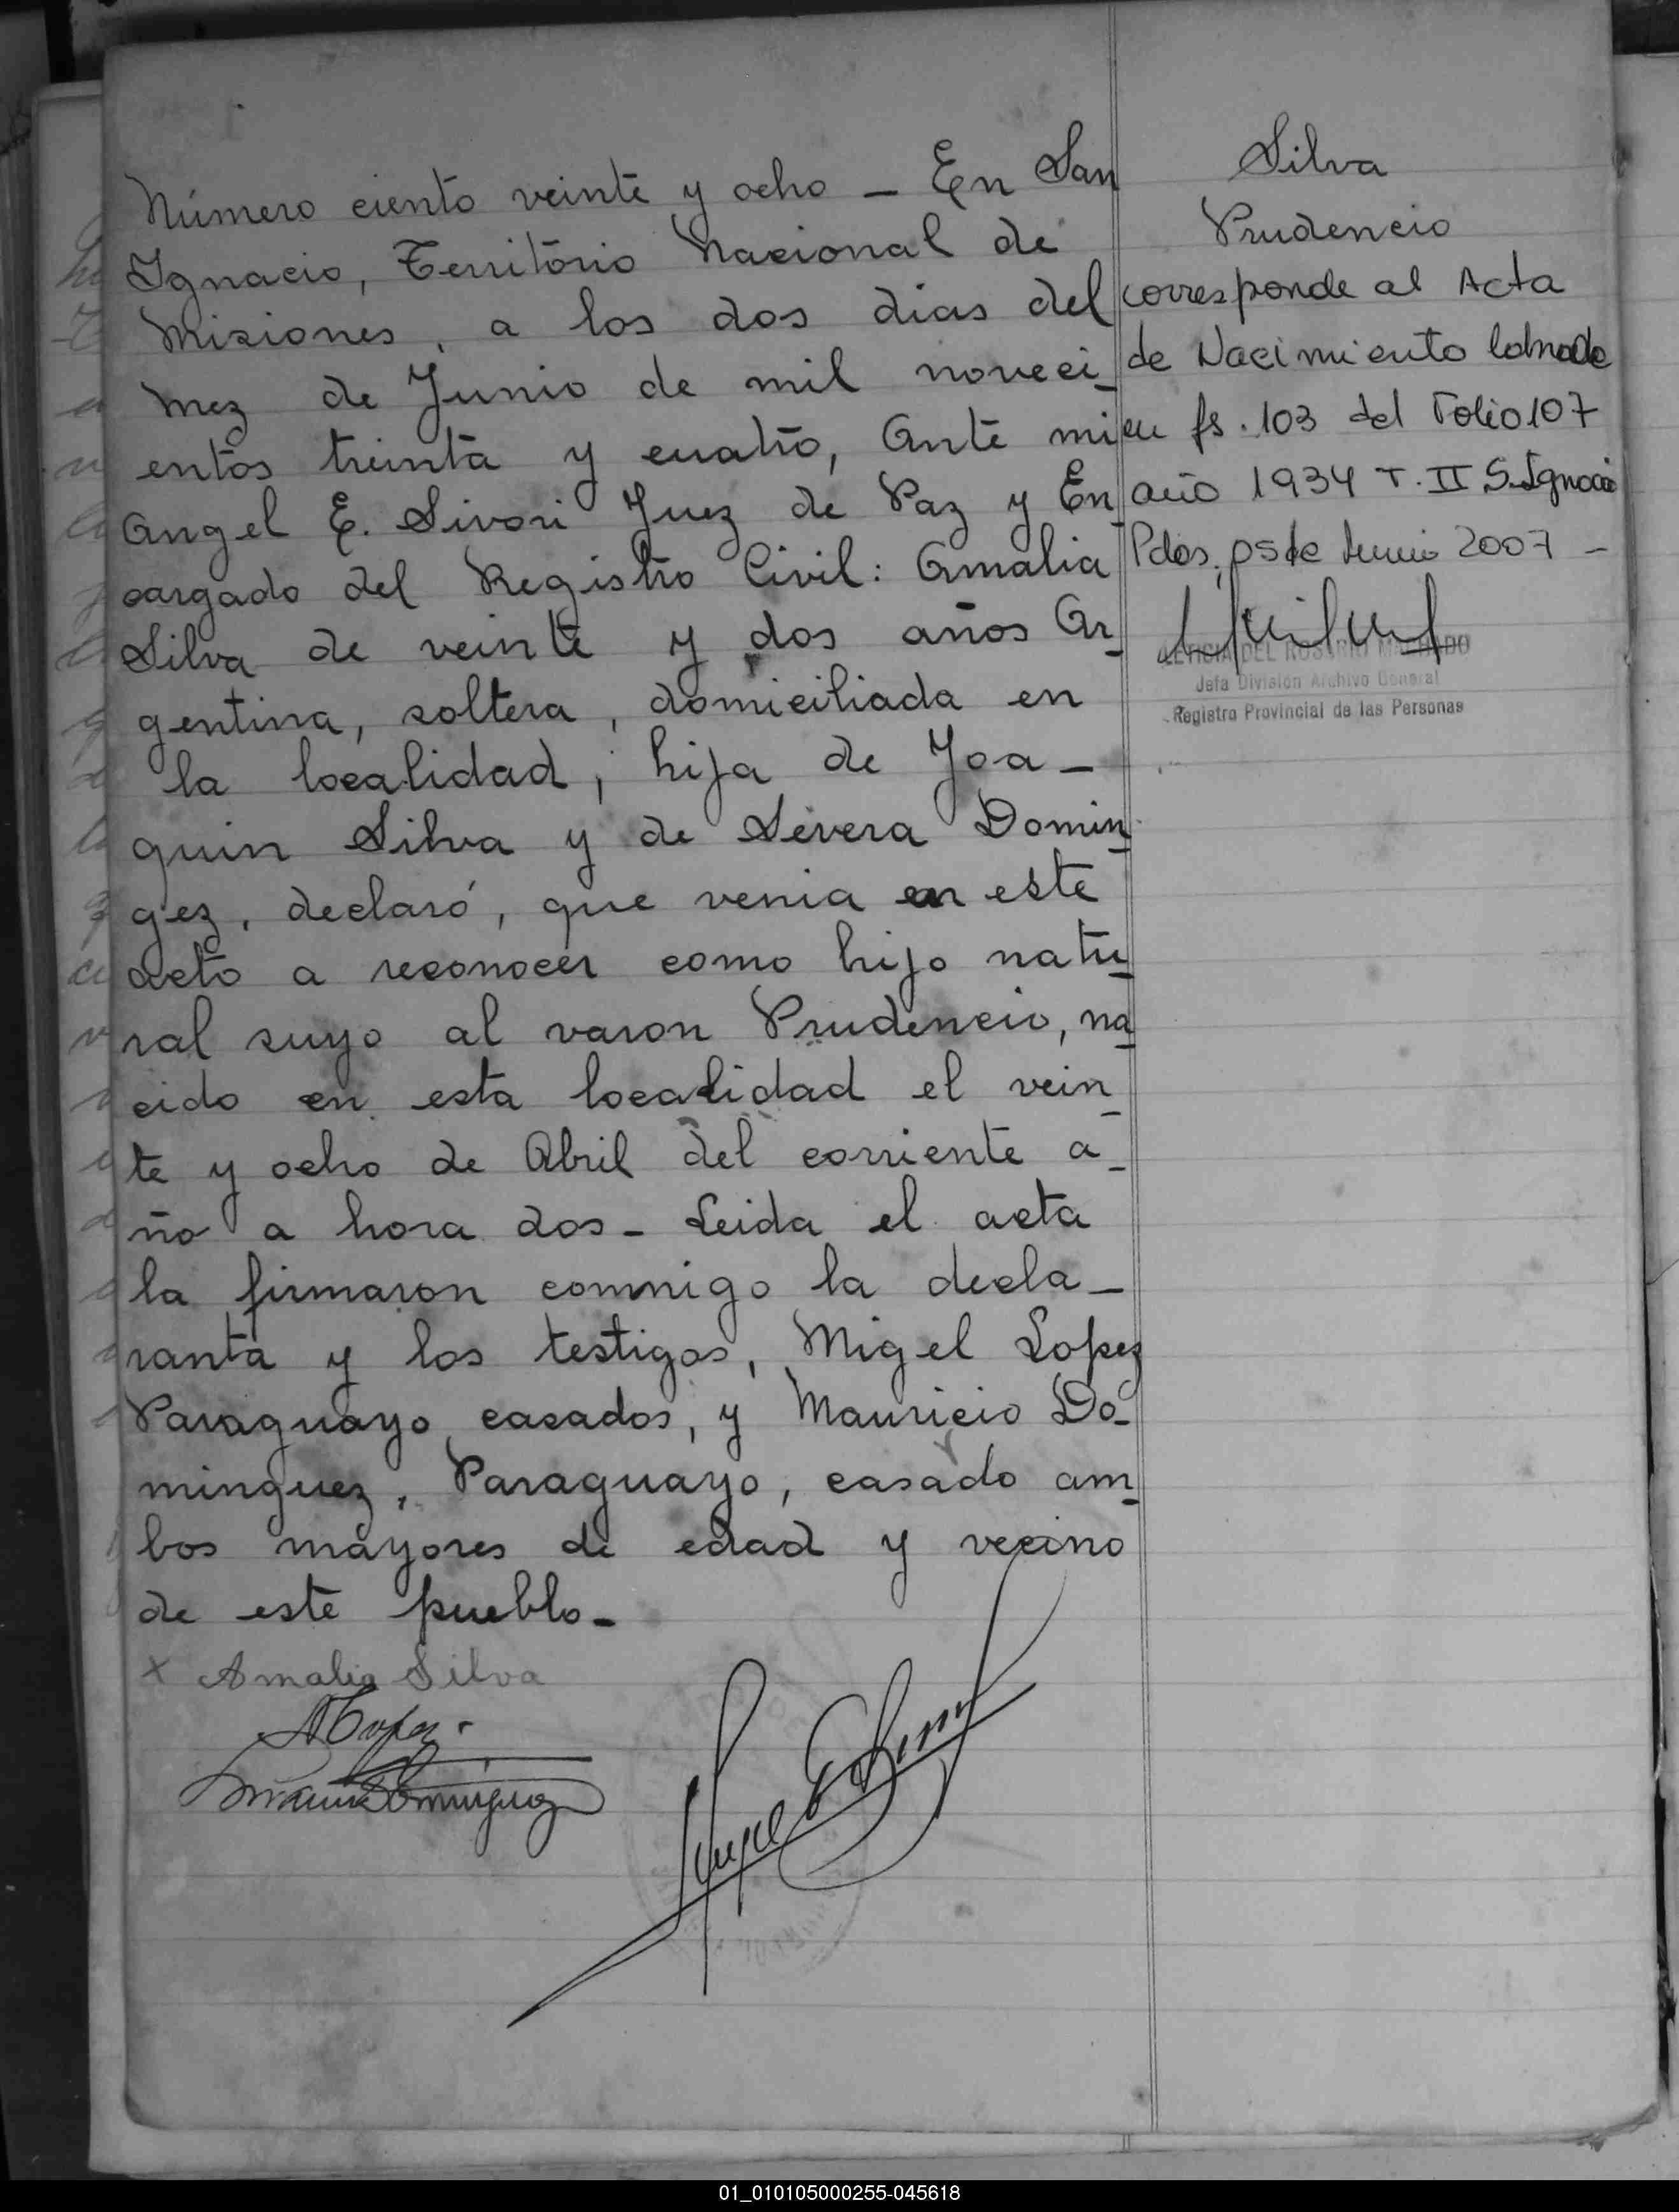 Número ciento veinte y ocho - En San
Ignacio, Território Nacional de
Misiones, a los dos dias del
mez de Junio de mil noveci-
entos treinta y cuatro, Ante mi
Angel E. Sivori Juez de Paz y En-
cargado del Registro Civil: Amalia
Silva de veinte y dos años Ar-
gentina, soltera, domiciliada en
la localidad, hija de Joa-
quin Silva y de Severa Domin-
gez, declaró, que venia en este
acto a reconocer como hijo natu-
ral suyo al varon Prudencio, na-
cido en esta localidad el vein-
te y ocho de Abril del corriente a-
ño a hora dos - Leida el acta
la firmaron comnigo la decla-
ranta y los testigos, Migel Lopez
Paraguayo casados, y Mauricio Do-
minguez, Paraguayo, casado am-
bos mayores de edad y vecino
de este pueblo -
x Amalia Silva
Lopez
Dominguez
Angel E Sivori
Silva
Prudencio
corresponde al Acta
de Nacimiento labrada
en fs. 103 del Folio 107
año 1934 T. II S. Ignacio
Pdas, 05 de Junio 2007 -
LETICIA DEL ROSARIO MACHADO
Jefa División Archivo General
Registro Provincial de las Personas
01_010105000255-045618